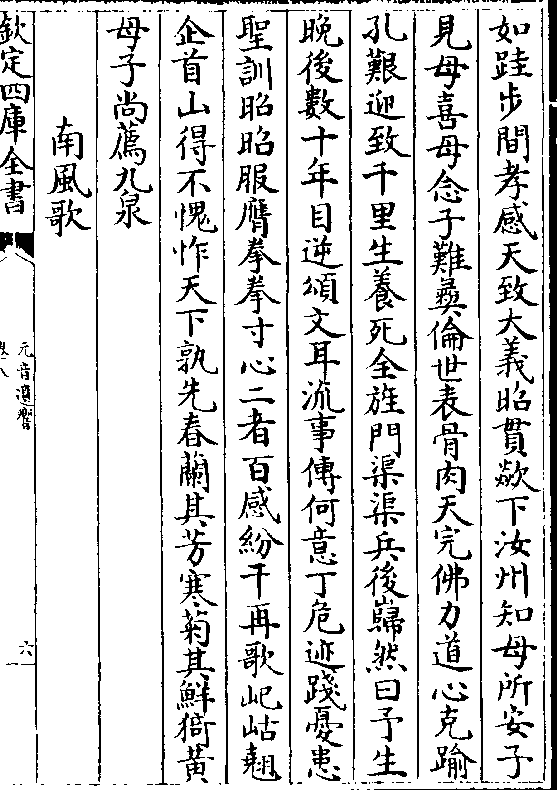 如跬步間孝感天致大義昭貫歘下汝州知母所安子
見母喜母念子難彛倫世表骨肉天完佛力道心克踰
孔艱迎致千里生養死全旌門渠渠兵後巋然曰予生
晚後數十年目逆頌文耳流事傳何意丁危迹踐憂患
聖訓昭昭服膺拳拳寸心二者百感紛干再歌屺岵翹
企首山得不愧怍天下孰先春蘭其芳寒菊其鮮猗黄
母子尚薦九泉
南風歌
欽定四庫全書
元音遺響
卷八
六